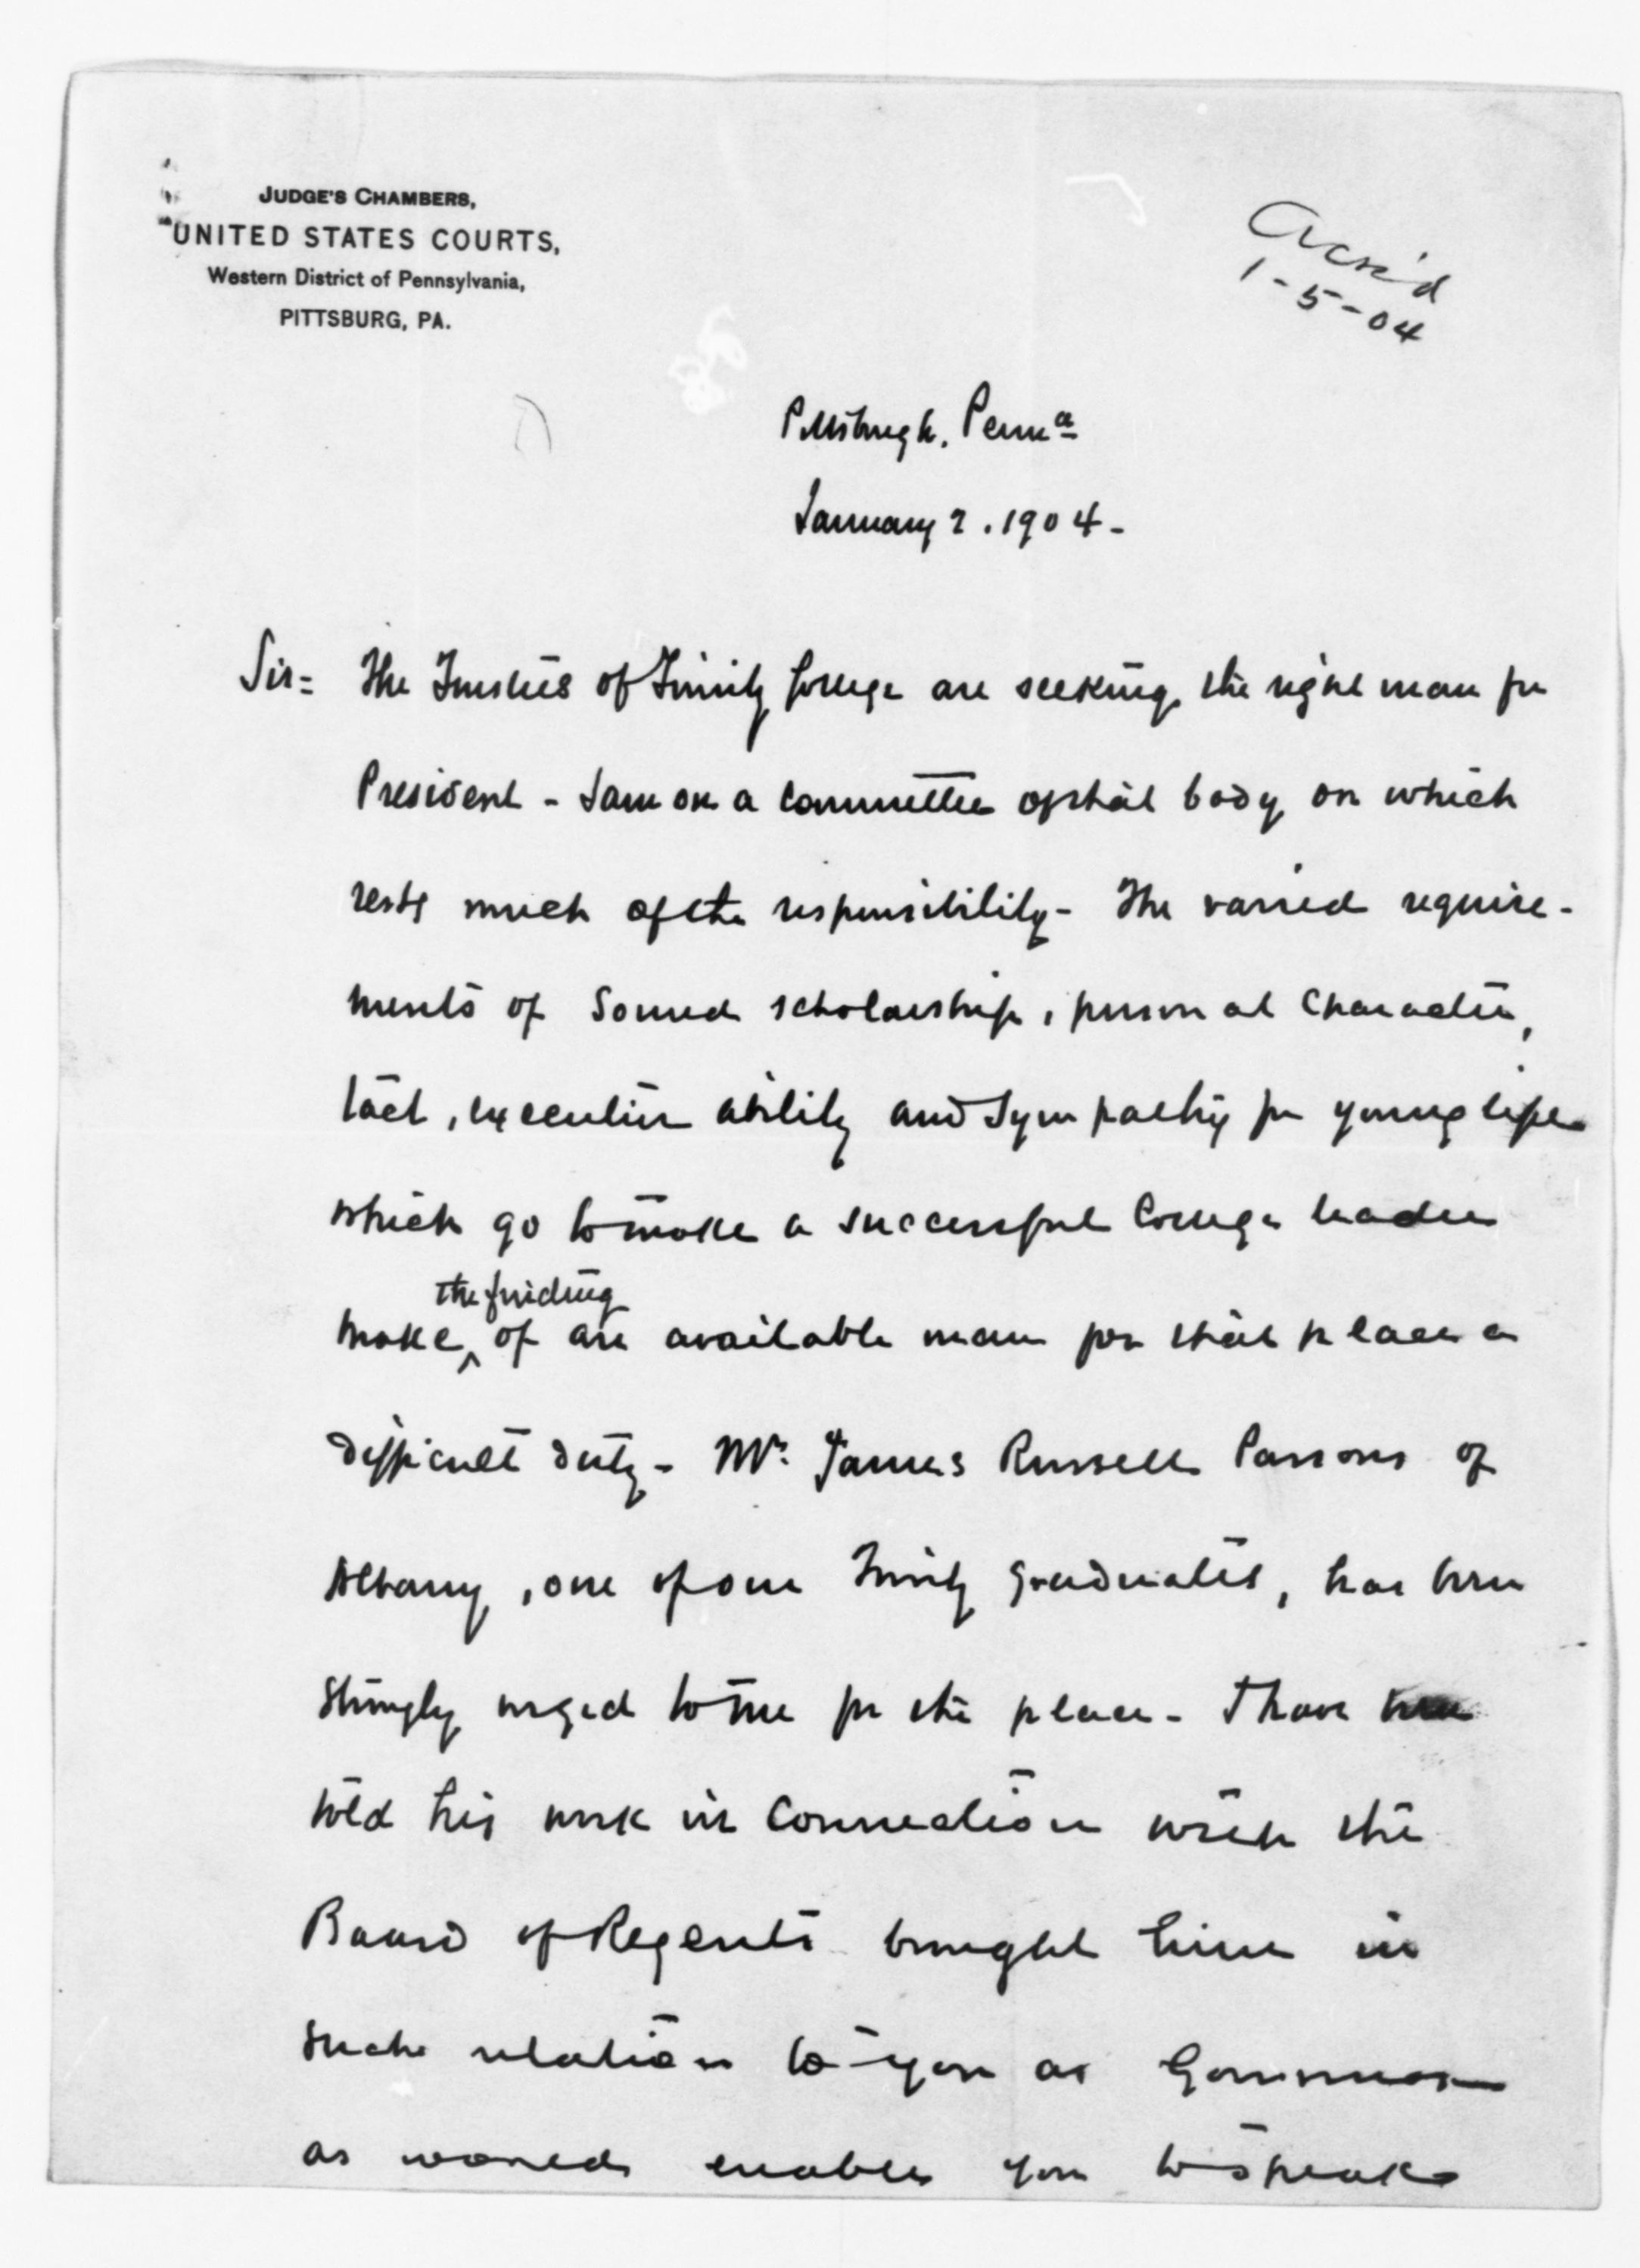 JUDGE'S CHAMBERS,
UNITED STATES COURTS,
Western District of Pennsylvania,
PITTSBURG, PA.
Ack'd
1-5-04
Pittsburgh, Penna
January 2. 1904-
Sir= The Trustees of Trinity College are seeking the right man for
President - I am on a committee of that body on which
rests much of the responsibility- The varied require-
ments of sound scholarship, personal character,
tact, executive ability and sympathy for young life
which go to make a successful College leader
the finding
make ^ of an available man for that place a
difficult duty - Mr. James Russell Parsons of
Albany, one of our Trinity graduates, has been
strongly urged to me for the place - I have
told his work in connection with the
Board of Regents brought him in
such relation to you as Governor
as would enable you to speak